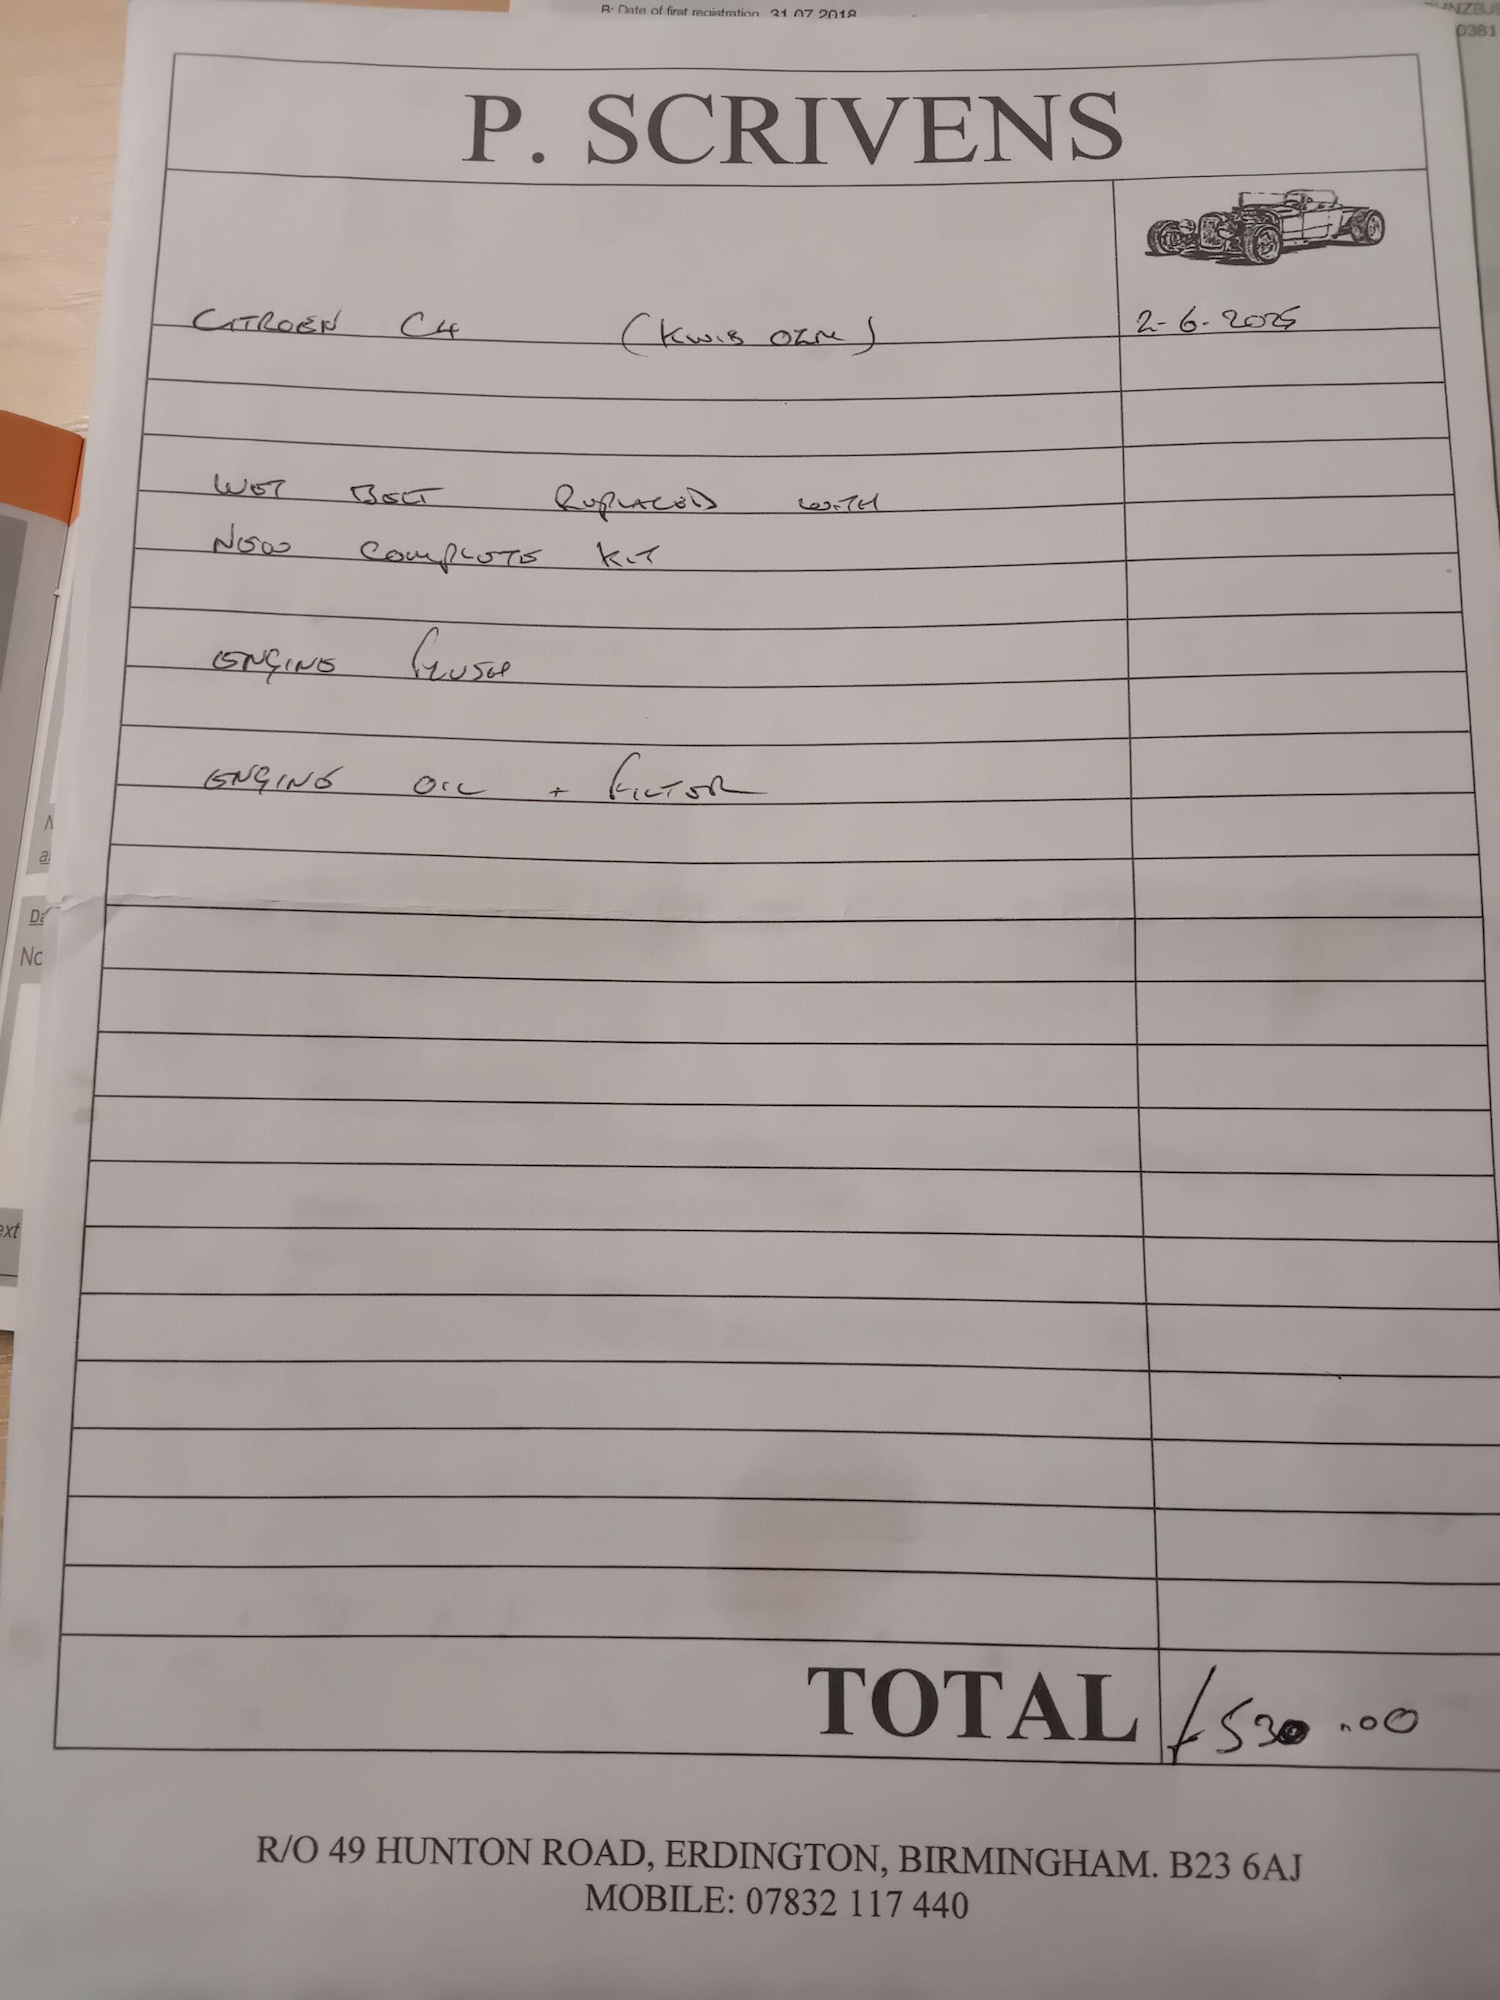 B: Date of first registration 31 07 2018
NZBJ
0381
P. SCRIVENS
CITROEN C4 (KW18 OZM) 2-6-2025
WET BELT REPLACED WITH
NEW COMPLETE KIT
ENGINE FLUSH
ENGINE OIL + FILTER
a
Da
No
ext
TOTAL £530.00
R/O 49 HUNTON ROAD, ERDINGTON, BIRMINGHAM. B23 6AJ
MOBILE: 07832 117 440